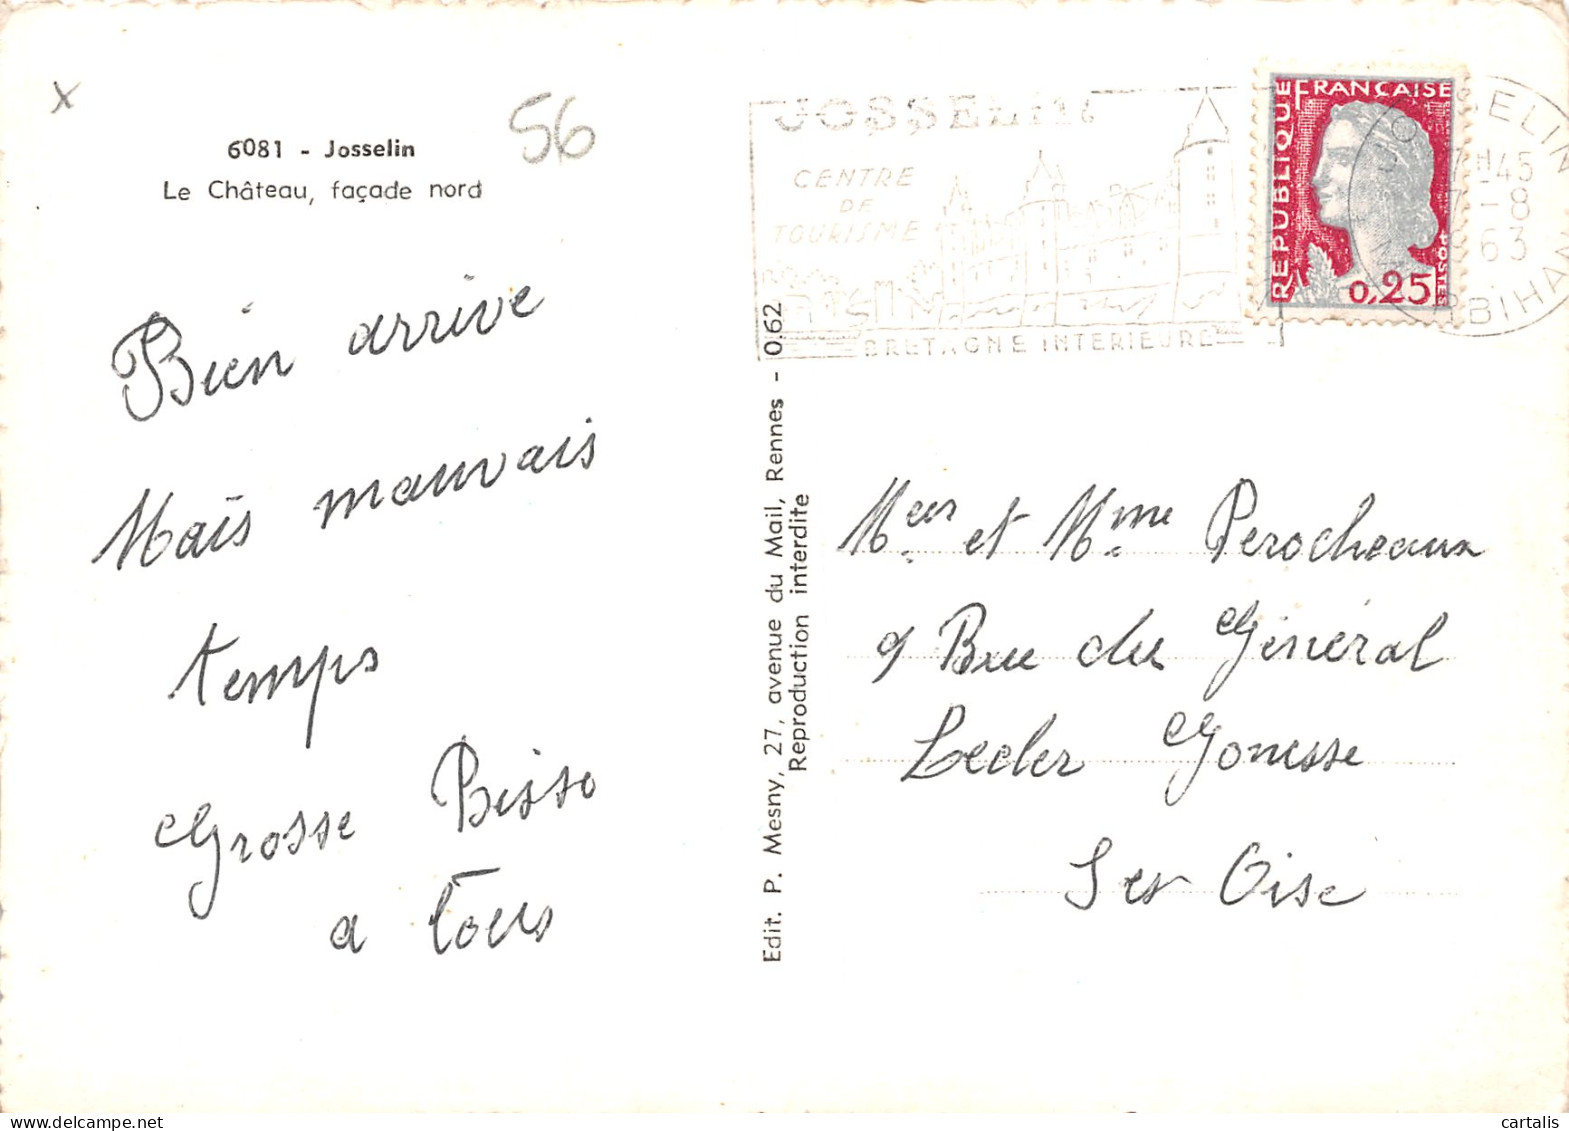 x
56
6081 - Josselin
Le Château, façade nord
Bien arrive
Mais mauvais
temps
Grosse Bise
a tous
Edit. P. Mesny, 27, avenue du Mail, Rennes - 0.62
Reproduction interdite
JOSSELIN
CENTRE
DE
TOURISME
BRETAGNE INTERIEURE
REPUBLIQUE FRANÇAISE
POSTES
0,25
JOSSELIN
17H45
7-8
1963
MORBIHAN
Mr et Mme Perocheaux
9 Rue du Général
Lecler Gonesse
S et Oise
cartalis